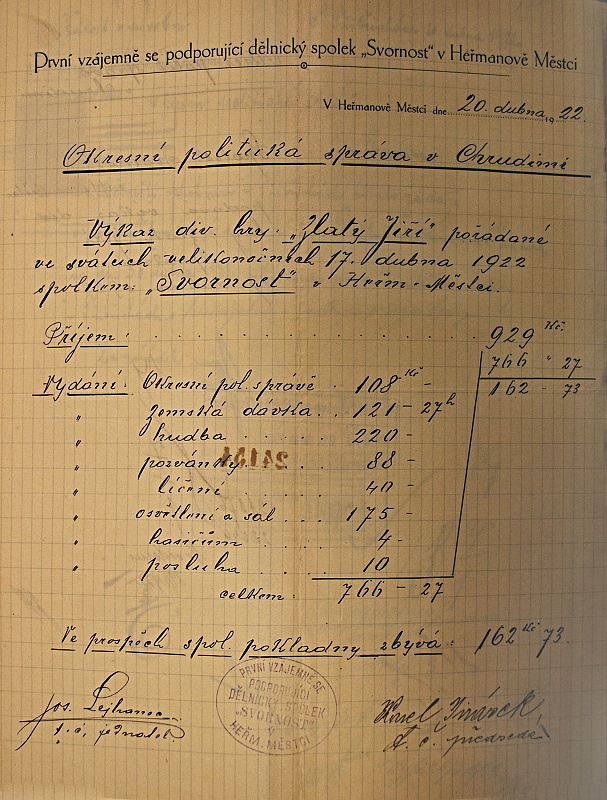 První vzájemně se podporující dělnický spolek „Svornost" v Heřmanově Městci
V Heřmanově Městci dne 20. dubna 1922.
Okresní politická správa v Chrudimi
Výkaz div. hry. „Zlatý Jiří" pořádané
ve svátcích velikonočních 17. dubna 1922
spolkem: „Svornost" v Heřm. Městci.
Příjem: . . . . . . . . . . . 929 Kč.
766 " 27
162 - 73
Vydání: Okresní pol. správě . 108 Kč -
" zemská dávka . . 121 - 27 h
" hudba . . . . . 220 -
" pozvánky . . . . 88 -
" líčení . . . . 40 -
" osvětlení a sál . . . 175 -
" hasičům . . . . 4 -
" posluha . . . . 10
celkem: 766 - 27
Ve prospěch spol. pokladny zbývá: 162 Kč 73.
PRVNÍ VZÁJEMNĚ SE
PODPORUJÍCÍ
DĚLNICKÝ SPOLEK
„SVORNOST"
V
HEŘM. MĚSTCI
Jos.
t. č. jednatel.
Karel
t. č. předseda